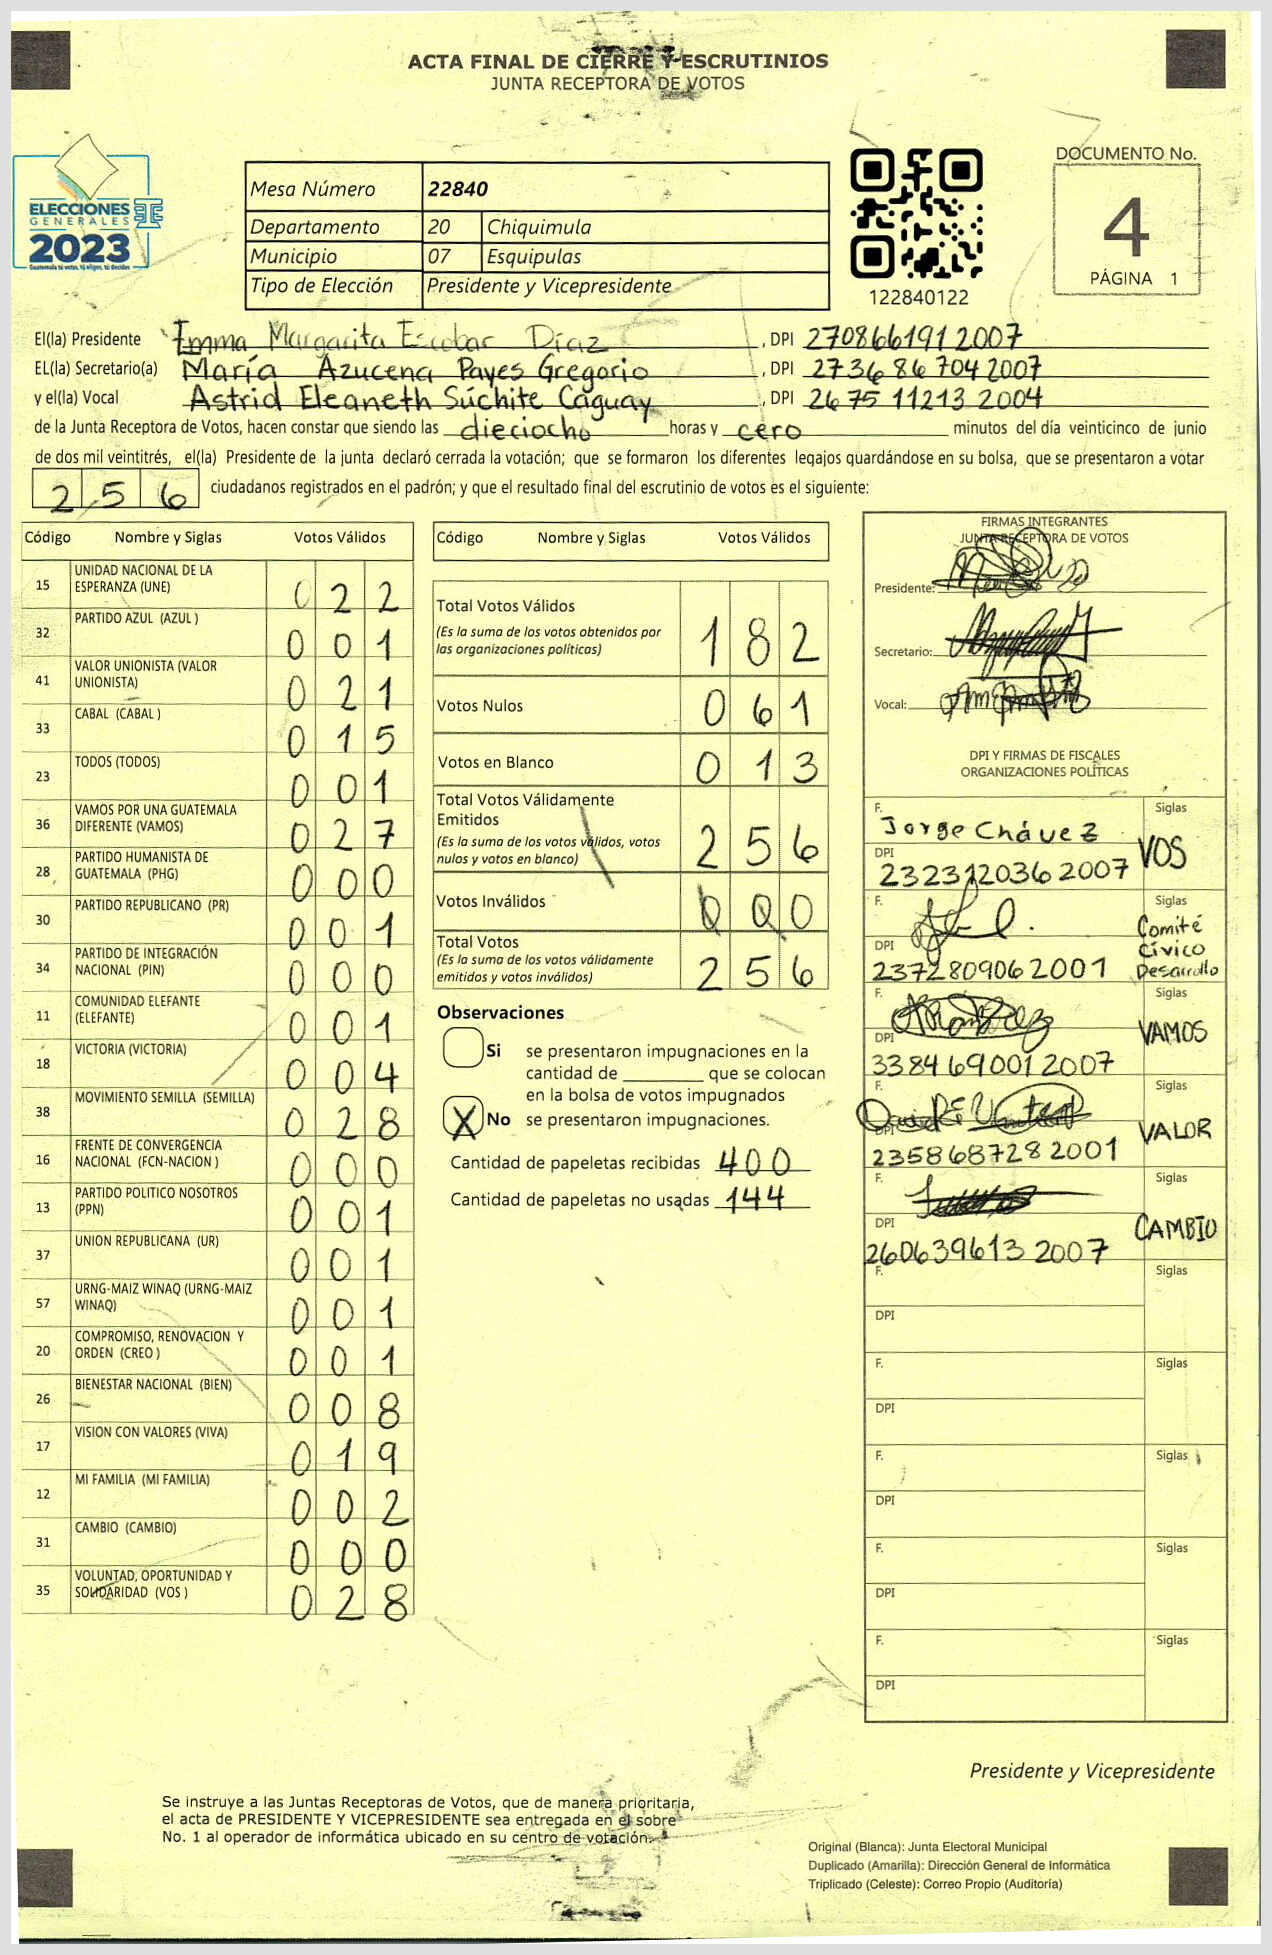 ACTA FINAL DE CIERRE Y ESCRUTINIOS
JUNTA RECEPTORA DE VOTOS
ELECCIONES
GENERALES
2023
Guatemala tú votas, tú eliges, tú decides
Mesa Número 22840
Departamento 20 Chiquimula
Municipio 07 Esquipulas
Tipo de Elección Presidente y Vicepresidente
122840122
DOCUMENTO No.
4
PÁGINA 1
El(la) Presidente Emma Margarita Escobar Díaz, DPI 2708661912007
EL(la) Secretario(a) María Azucena Payes Gregorio, DPI 2736867042007
y el(la) Vocal Astrid Eleaneth Súchite Caguay, DPI 2675112132004
de la Junta Receptora de Votos, hacen constar que siendo las dieciocho horas y cero minutos del día veinticinco de junio
de dos mil veintitrés, el(la) Presidente de la junta declaró cerrada la votación; que se formaron los diferentes legajos guardándose en su bolsa, que se presentaron a votar
256 ciudadanos registrados en el padrón; y que el resultado final del escrutinio de votos es el siguiente:
Código Nombre y Siglas Votos Válidos
15 UNIDAD NACIONAL DE LA ESPERANZA (UNE) 022
32 PARTIDO AZUL (AZUL ) 001
41 VALOR UNIONISTA (VALOR UNIONISTA) 021
33 CABAL (CABAL ) 015
23 TODOS (TODOS) 001
36 VAMOS POR UNA GUATEMALA DIFERENTE (VAMOS) 027
28 PARTIDO HUMANISTA DE GUATEMALA (PHG) 000
30 PARTIDO REPUBLICANO (PR) 001
34 PARTIDO DE INTEGRACIÓN NACIONAL (PIN) 000
11 COMUNIDAD ELEFANTE (ELEFANTE) 001
18 VICTORIA (VICTORIA) 004
38 MOVIMIENTO SEMILLA (SEMILLA) 028
16 FRENTE DE CONVERGENCIA NACIONAL (FCN-NACION ) 000
13 PARTIDO POLITICO NOSOTROS (PPN) 001
37 UNION REPUBLICANA (UR) 001
57 URNG-MAIZ WINAQ (URNG-MAIZ WINAQ) 001
20 COMPROMISO, RENOVACION Y ORDEN (CREO ) 001
26 BIENESTAR NACIONAL (BIEN) 008
17 VISION CON VALORES (VIVA) 019
12 MI FAMILIA (MI FAMILIA) 002
31 CAMBIO (CAMBIO) 000
35 VOLUNTAD, OPORTUNIDAD Y SOLIDARIDAD (VOS ) 028
Código Nombre y Siglas Votos Válidos
Total Votos Válidos 182
(Es la suma de los votos obtenidos por
las organizaciones políticas)
Votos Nulos 061
Votos en Blanco 013
Total Votos Válidamente
Emitidos 256
(Es la suma de los votos válidos, votos
nulos y votos en blanco)
Votos Inválidos 000
Total Votos 256
(Es la suma de los votos válidamente
emitidos y votos inválidos)
Observaciones
Si se presentaron impugnaciones en la
cantidad de ________ que se colocan
en la bolsa de votos impugnados
X No se presentaron impugnaciones.
Cantidad de papeletas recibidas 400
Cantidad de papeletas no usadas 144
FIRMAS INTEGRANTES
JUNTA RECEPTORA DE VOTOS
Presidente:
Secretario:
Vocal:
DPI Y FIRMAS DE FISCALES
ORGANIZACIONES POLÍTICAS
F. Jorge Chávez Siglas
DPI 2323120362007 VOS
F. Siglas
DPI 2372809062001 Comité Cívico Desarrollo
F. Siglas
DPI 3384690012007 VAMOS
F. Siglas
DPI 2358687282001 VALOR
F. Siglas
DPI 2606396132007 CAMBIO
F. Siglas
DPI
F. Siglas
DPI
F. Siglas
DPI
F. Siglas
DPI
F. Siglas
DPI
Presidente y Vicepresidente
Se instruye a las Juntas Receptoras de Votos, que de manera prioritaria,
el acta de PRESIDENTE Y VICEPRESIDENTE sea entregada en el sobre
No. 1 al operador de informática ubicado en su centro de votación.
Original (Blanca): Junta Electoral Municipal
Duplicado (Amarilla): Dirección General de Informática
Triplicado (Celeste): Correo Propio (Auditoría)